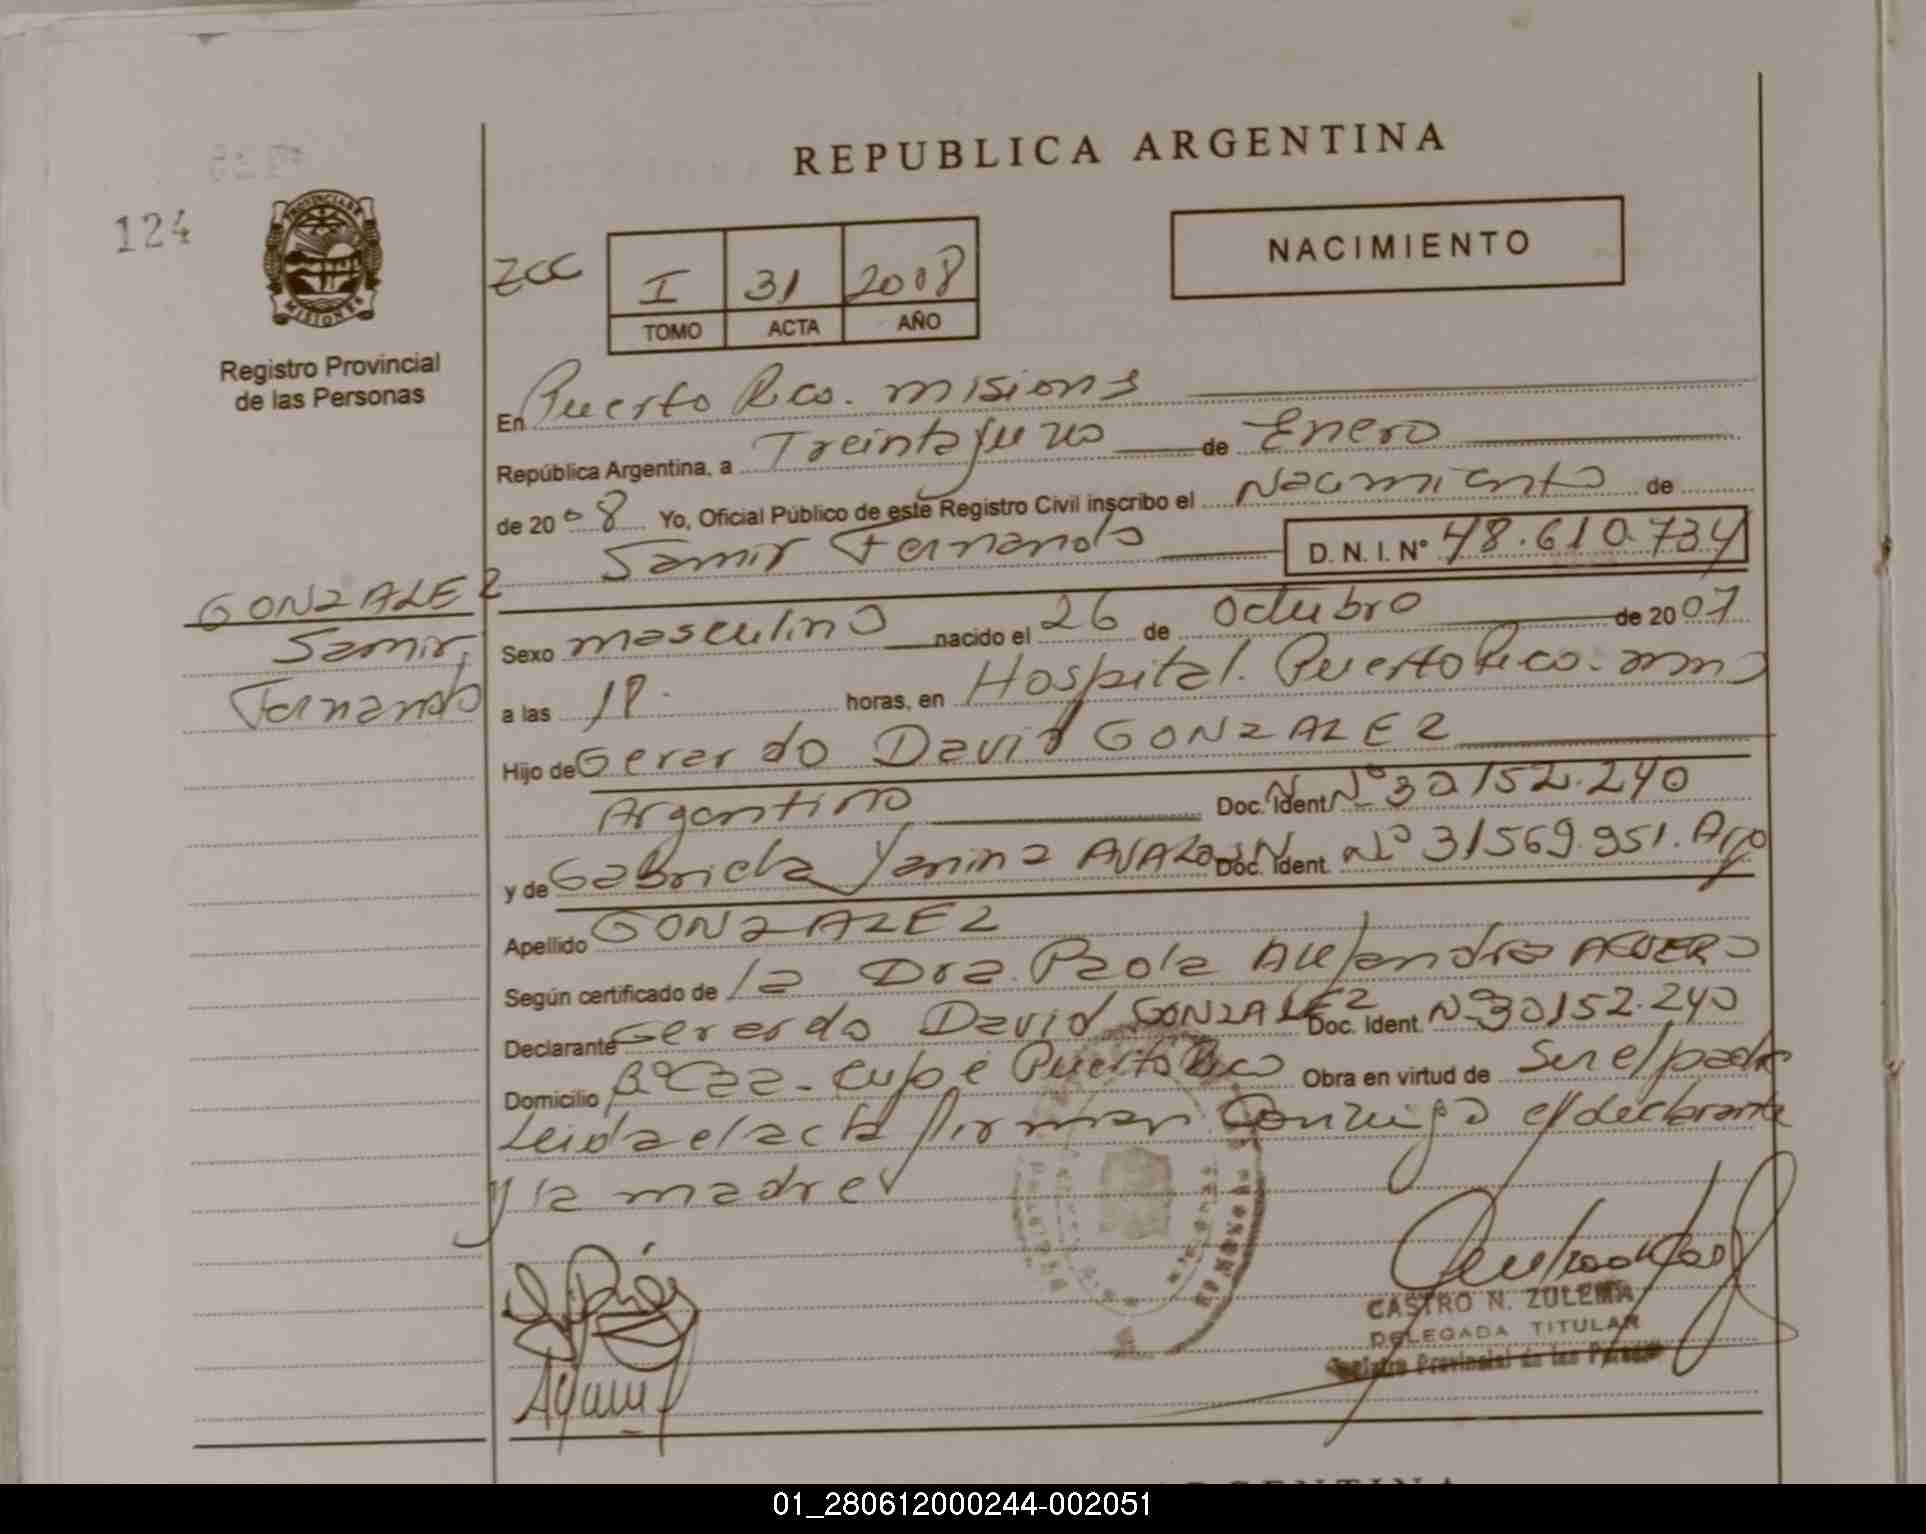 REPUBLICA ARGENTINA
124
PROVINCIA DE
MISIONES
Registro Provincial
de las Personas
ZCC
I 31 2008
TOMO ACTA AÑO
NACIMIENTO
En Puerto Rico. misiones
República Argentina, a Treinta y uno de Enero
de 2008 Yo, Oficial Público de este Registro Civil inscribo el Nacimiento de
Samir Fernando D.N.I. Nº 48.610.734
GONZALEZ
Samir,
Fernando
Sexo masculino nacido el 26 de Octubro de 2007
a las 18. horas, en Hospital. Puerto Rico.
Hijo de Gerardo David GONZALEZ
Argentino Doc. Ident. Nº 30152.240
y de Gabriela Yanina Doc. Ident. Nº 31569.951. Arg
Apellido GONZALEZ
Según certificado de la Dra. Paola Alejandra
Declarante Gerardo David GONZALEZ Doc. Ident. Nº 30152.240
Domicilio Puerto Rico Obra en virtud de Ser el padre
Leida el acta firman Conmigo el declarante
y la madre
CASTRO N. ZULEMA
DELEGADA TITULAR
Registro Provincial de las Personas
ARGENTINA
01_280612000244-002051